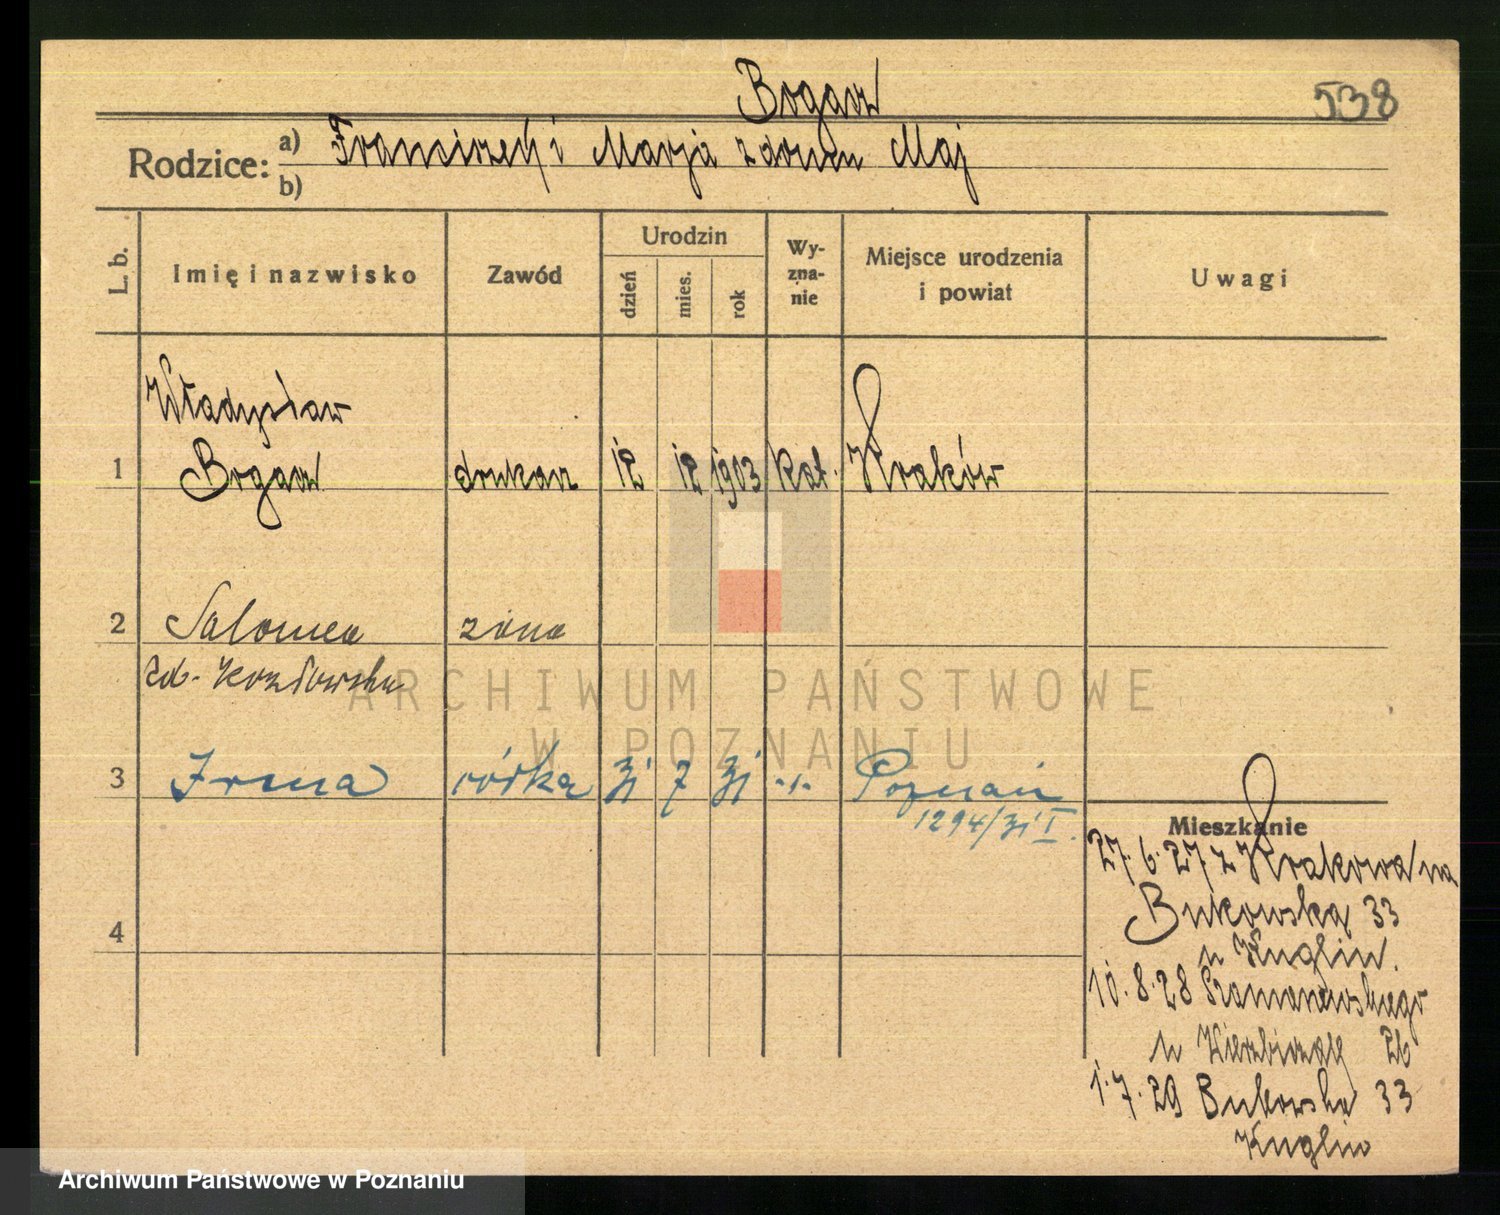 Bogacz
538
Rodzice: a) Franciszek i Marja z domu Maj
b)
L. b.
Imię i nazwisko
Zawód
Urodzin
dzień
mies.
rok
Wy-
zna-
nie
Miejsce urodzenia
i powiat
Uwagi
Władysław
1 Bogacz drukarz 12 12 1903 kat. Kraków
2 Salomea żona
zd. Kozłowska
3 Irena córka 31 7 31 -"- Poznań
1294/31 I.
4
Mieszkanie
27.6.27 z Krakowa na
Bukowską 33
u Kuglin.
10.8.28 Szamarzewskiego
u 26
1.7.29 Bukowska 33
Kuglin
ARCHIWUM PAŃSTWOWE
W POZNANIU
Archiwum Państwowe w Poznaniu